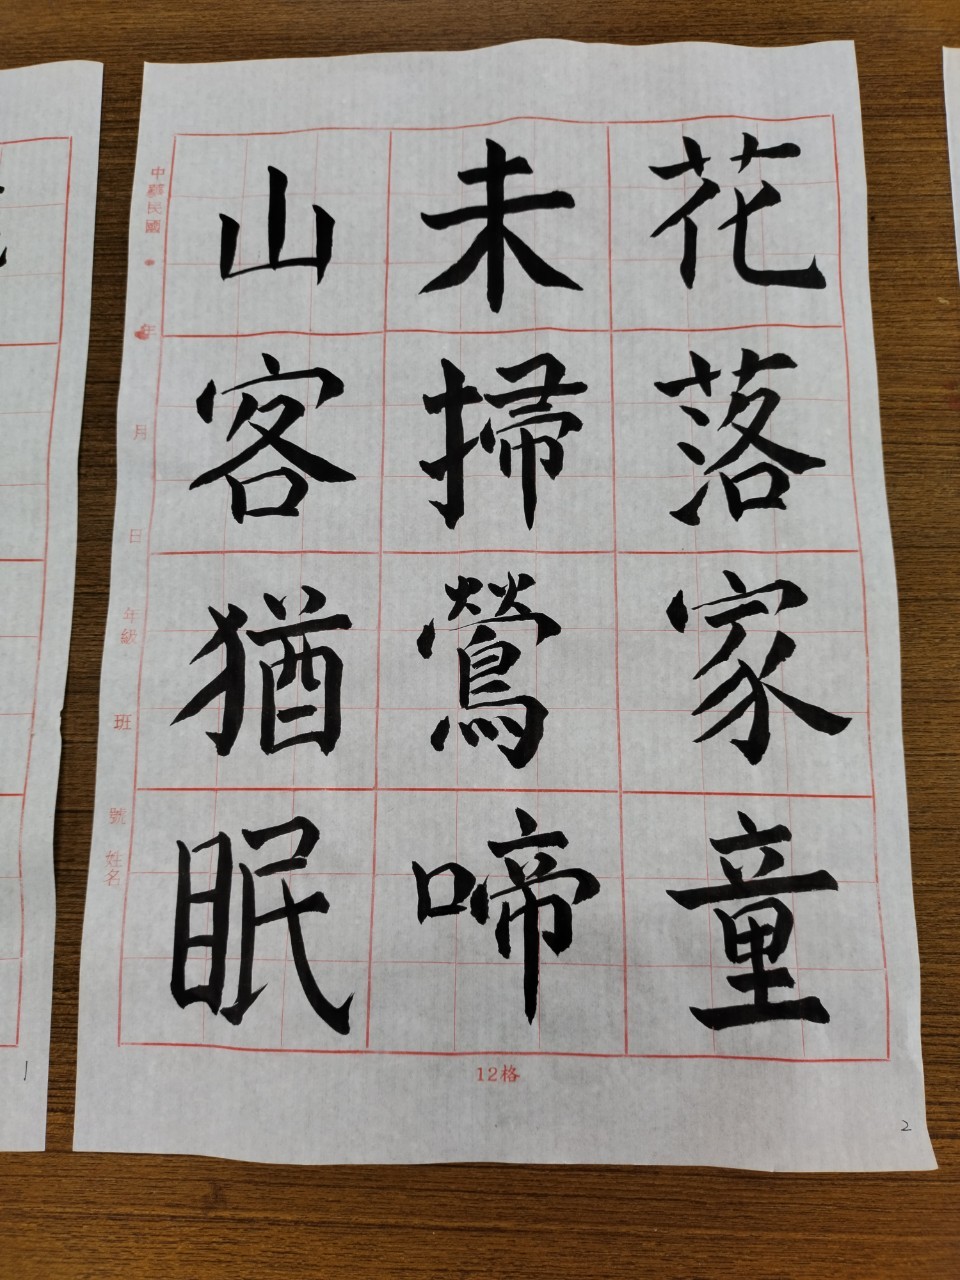 花落家童
未掃鶯啼
山客猶眠
中華民國 年 月 日 年級 班 號 姓名
12格
2
1